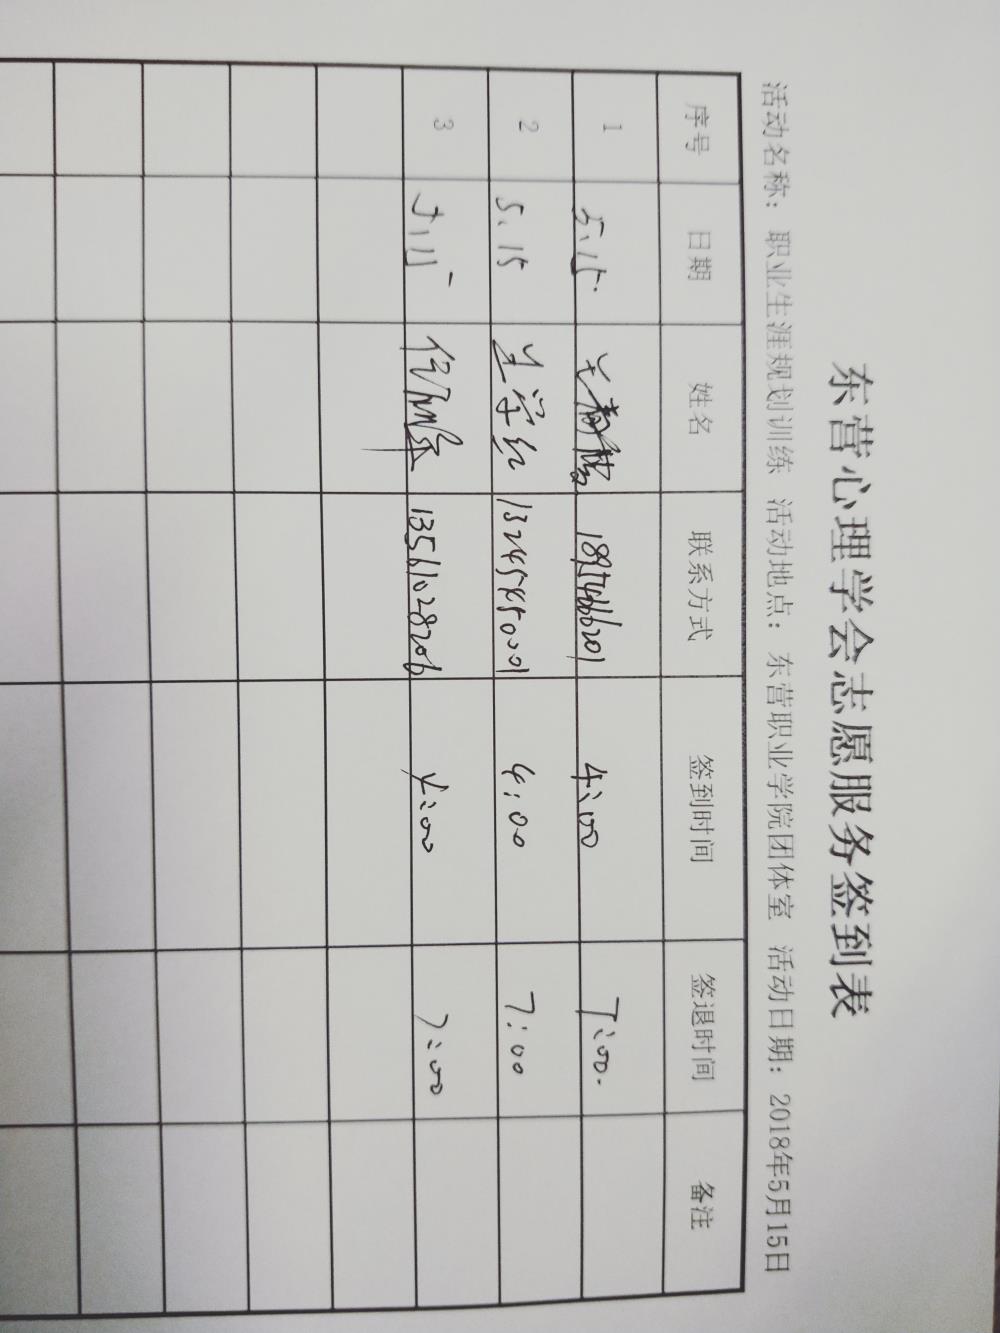 东营心理学会志愿服务签到表
活动名称：职业生涯规划训练 活动地点：东营职业学院团体室 活动日期：2018年5月15日
序号 日期 姓名 联系方式 签到时间 签退时间 备注
1 5.15. 4:00 7:00.
2 5.15 13245450001 4:00 7:00
3 5.15 13561028206 4:00 7:00